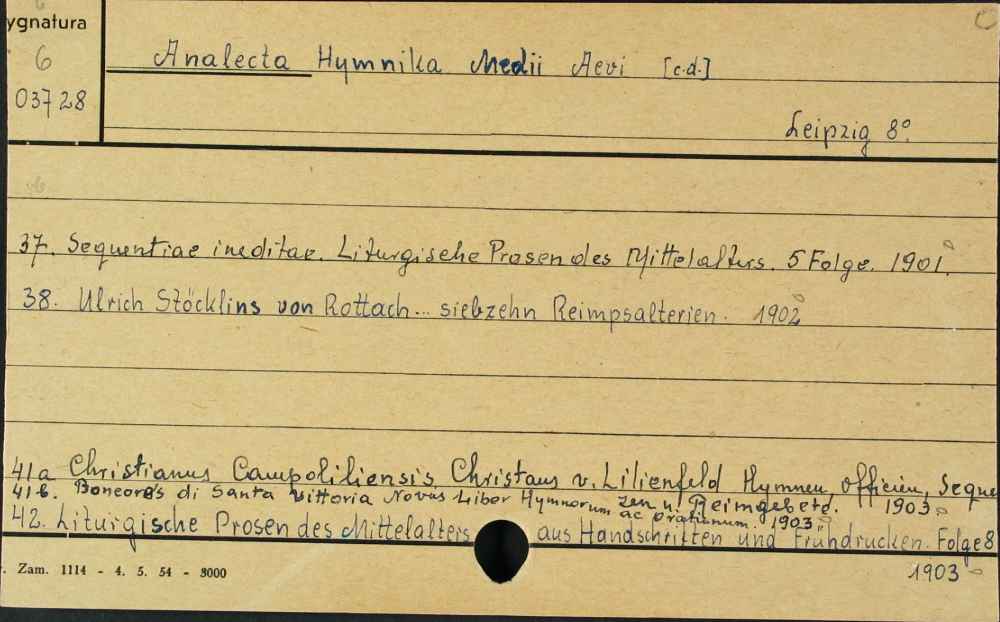 ygnatura
6
03728
Analecta Hymnika Medii Aevi [c.d.]
Leipzig 8°.
37. Sequentiae ineditae. Liturgische Prosen des Mittelalters. 5 Folge. 1901.
38. Ulrich Stöcklins von Rottach... siebzehn Reimpsalterien. 1902
41a Christianus Campoliliensis. Christans v. Lilienfeld Hymnen, Officien, Seque
zen u. Reimgebete. 1903
41b. Boncore's di Santa Vittoria Novus Liber Hymnorum ac Orationum. 1903
42. Liturgische Prosen des Mittelalters aus Handschriften und Frühdrucken. Folge 8
1903
. Zam. 1114 - 4. 5. 54 - 3000